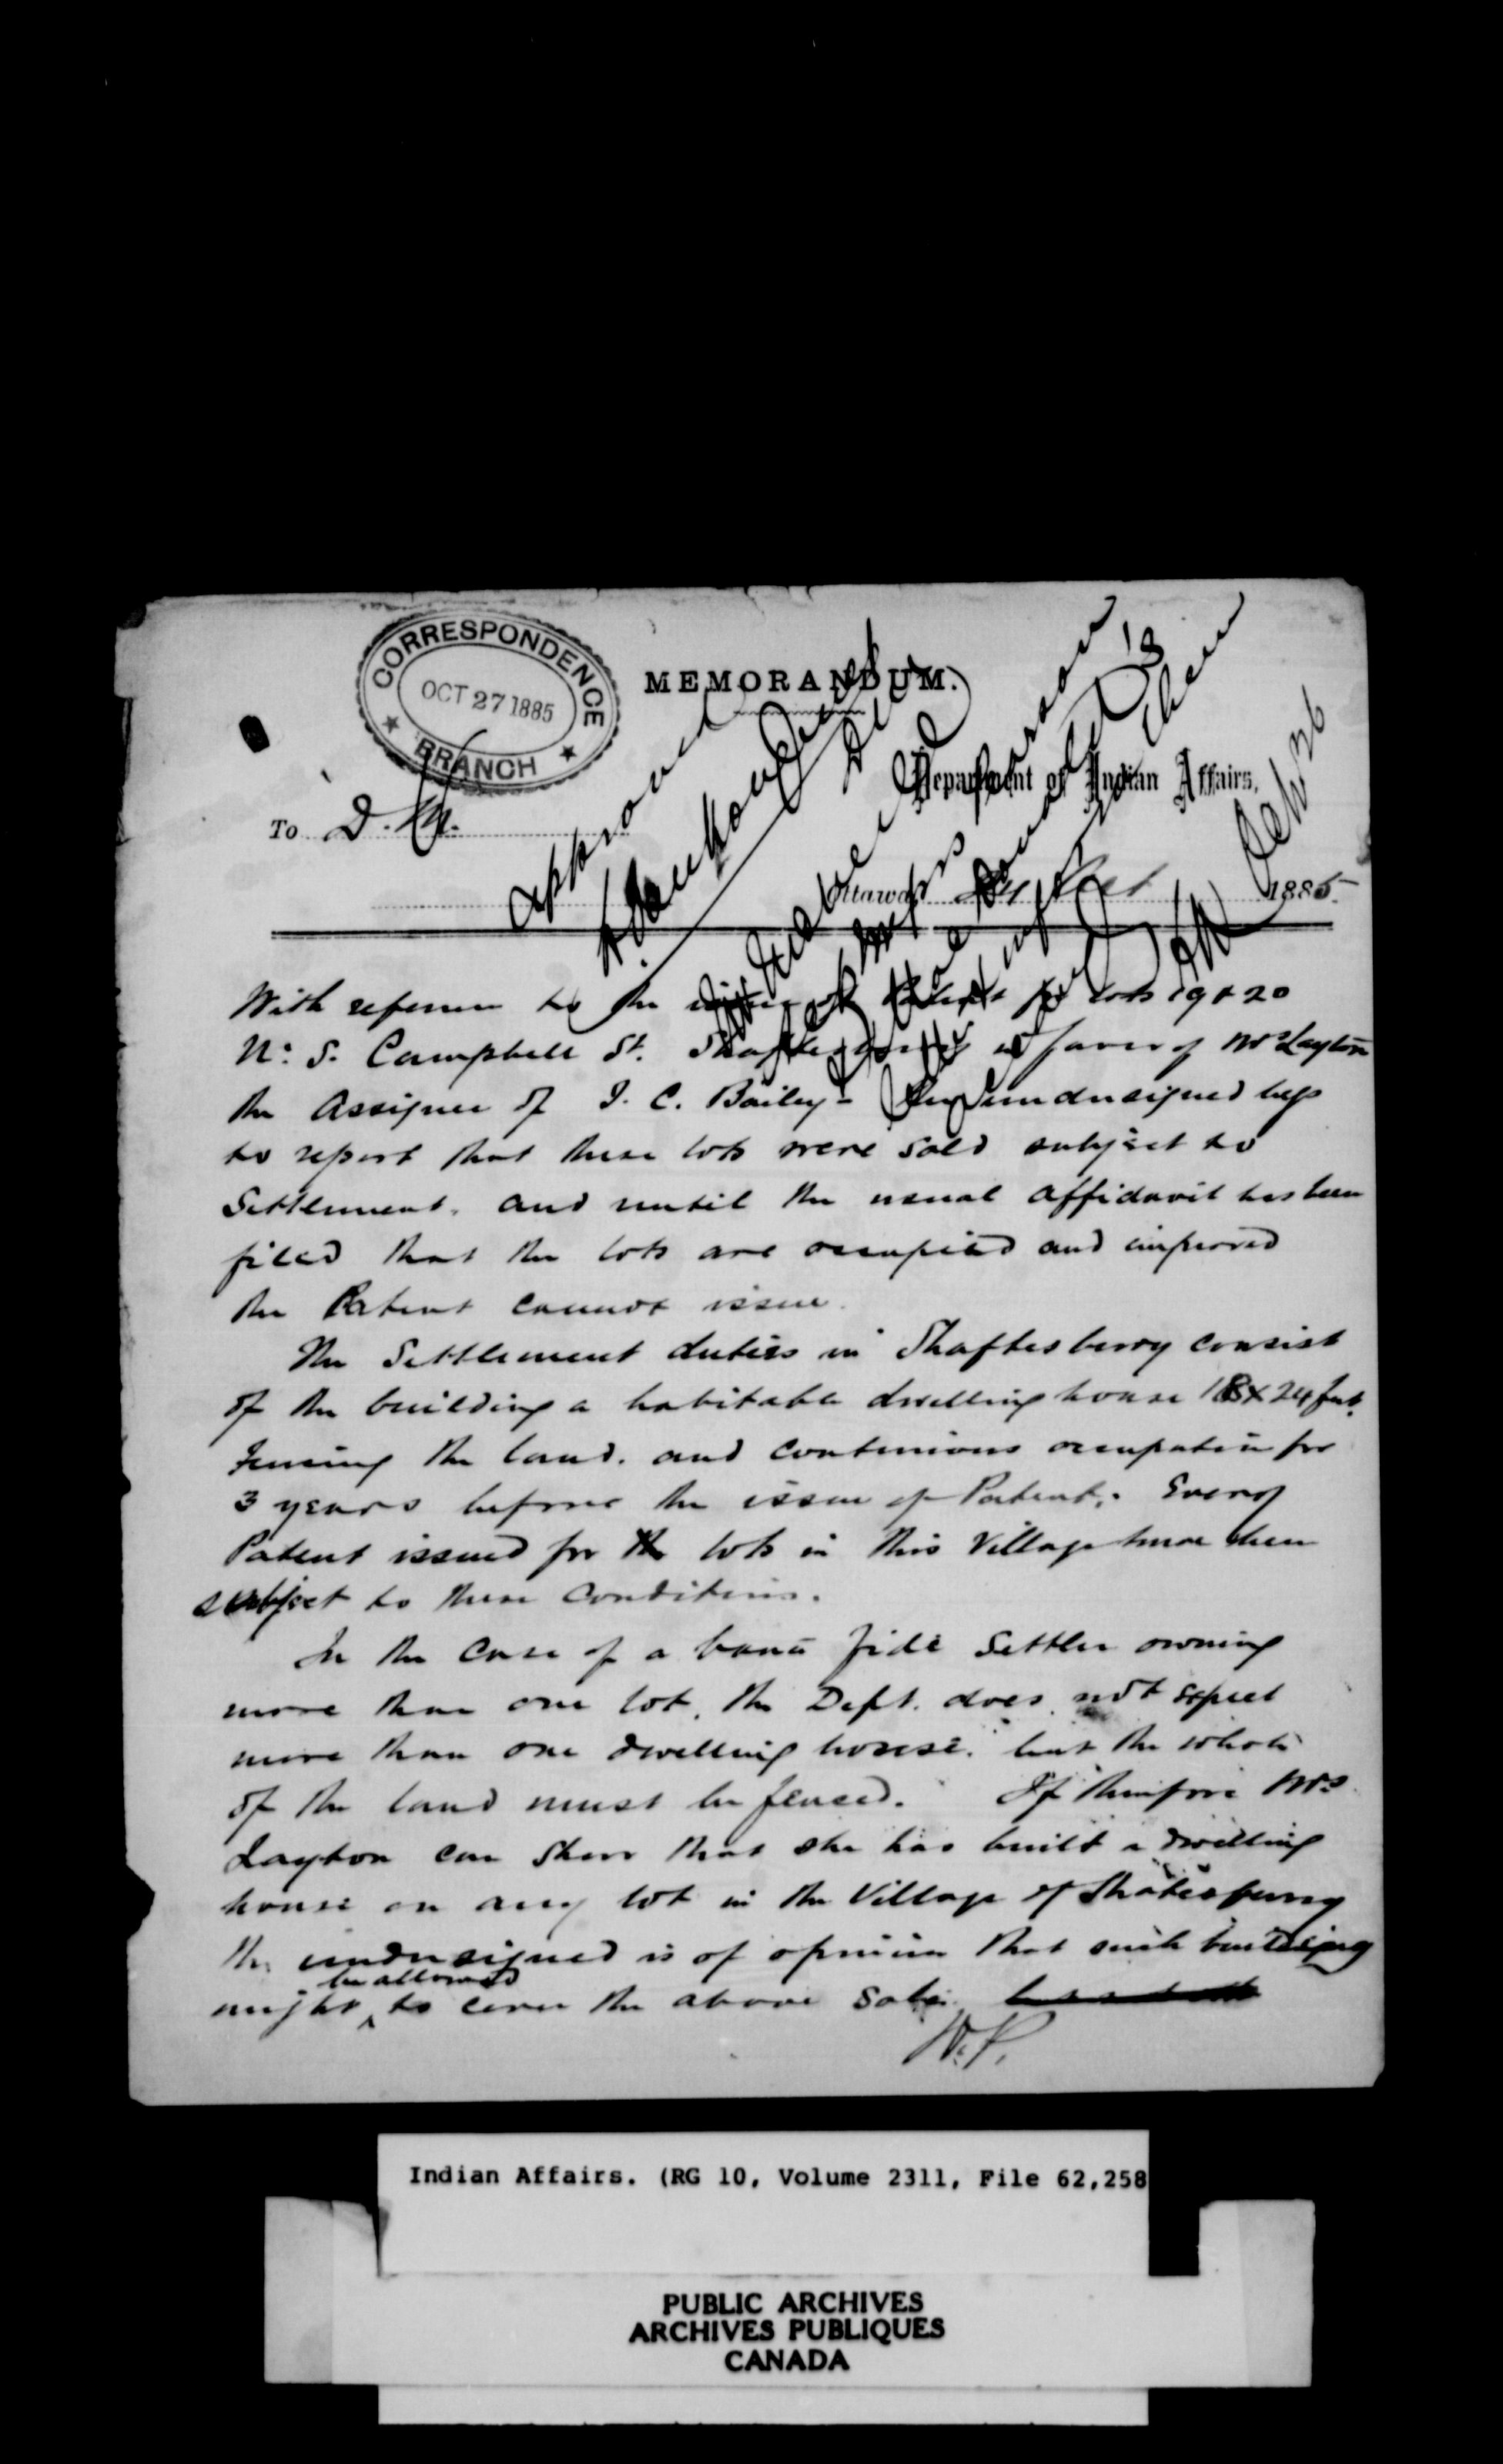 CORRESPONDENCE
OCT 27 1885
BRANCH
MEMORANDUM.
Department of Indian Affairs,
To D.
Ottawa, 24 Oct 1885
approved
With reference to the issue of Patent for lots 19 & 20
N. S. Campbell St. Shaftesbury in favor of Mrs Layton
the Assignee of J. C. Bailey - the undersigned begs
to report that these lots were sold subject to
Settlement. and until the usual affidavit has been
filed that the lots are occupied and improved
the Patent cannot issue.
The Settlement duties in Shaftesbury consist
of the building a habitable dwelling house 18 x 24 feet.
fencing the land. and continuous occupation for
3 years before the issue of Patent. Every
Patent issued for the lots in this Village have been
subject to these conditions.
In the case of a bona fide settler owning
more than one lot, the Dept. does not expect
more than one dwelling house. but the whole
of the land must be fenced. If therefore Mrs
Layton can show that she has built a dwelling
house on any lot in the Village of Shaftesbury
the undersigned is of opinion that such building
might be allowed to cover the above sale.
Indian Affairs. (RG 10, Volume 2311, File 62,258
PUBLIC ARCHIVES
ARCHIVES PUBLIQUES
CANADA